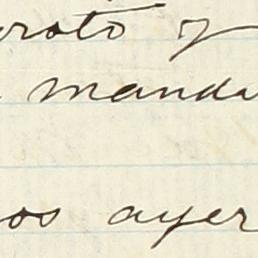 roto y
manda
os ayer